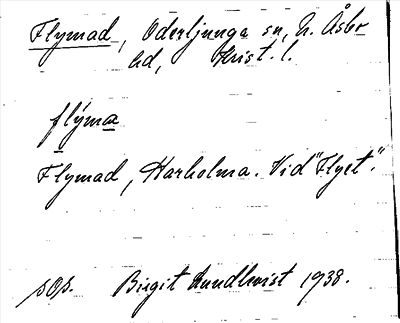 Flymad, Oderljunga sn, N. Åsbo
hd, Krist. l.
flýma
Flymad, Harholma. Vid "Flyet".
sop. Birgit Lundkvist 1938.